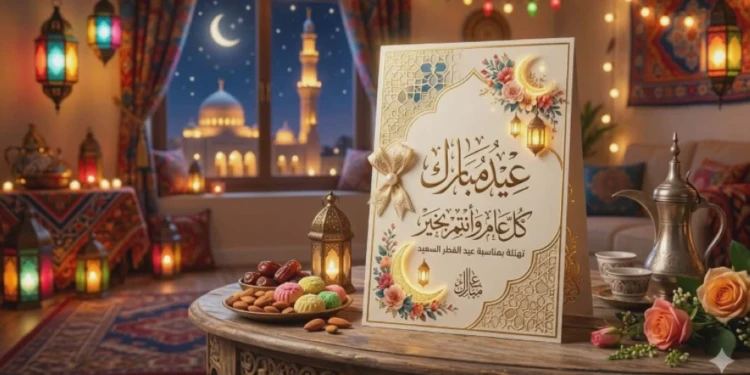 عيد مبارك
كل عام وأنتم بخير
تهنئة بمناسبة عيد الفطر السعيد